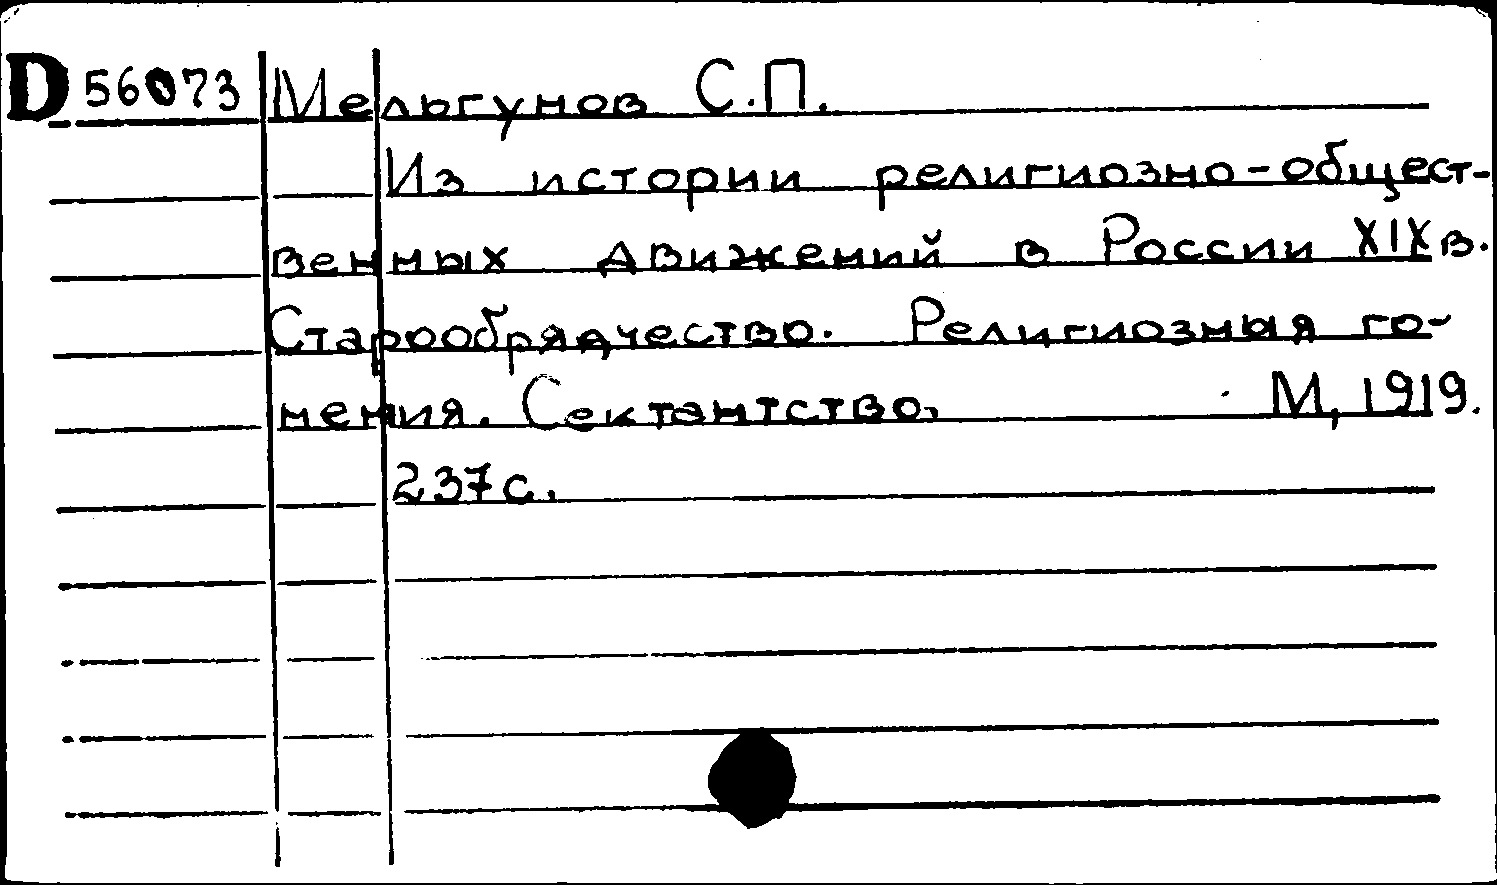 D 56073 Мельгунов С.П.
Из истории религиозно-общест-
венных движений в России XIX в.
Старообрядчество. Религиозныя го-
нения. Сектантство. М, 1919.
237 с.